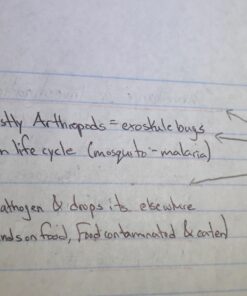 stly Arthropods = exoskule bugs
n life cycle (mosquito - malaria)
athogen & drops its elsewhure
nds on food, Food contaminated & eaten)